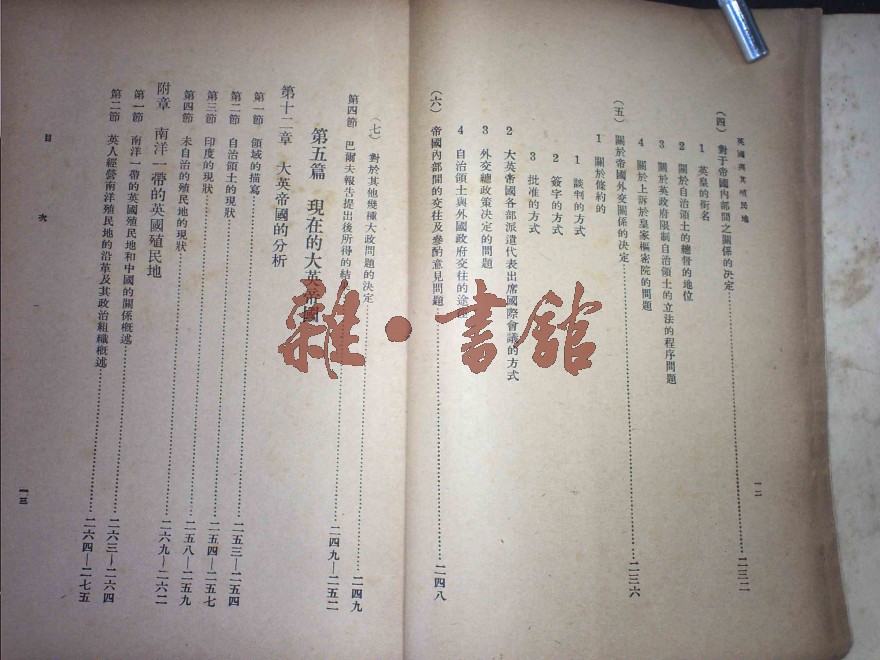 英國與其殖民地
一二
(四) 對于帝國內部間之關係的決定……二三二
1 英皇的銜名
2 關於自治領土的總督的地位
3 關於英政府限制自治領土的立法的程序問題
4 關於上訴於皇家樞密院的問題
(五) 關於帝國外交關係的決定……二三六
1 關於條約的
1 談判的方式
2 簽字的方式
3 批准的方式
2 大英帝國各部派遣代表出席國際會議的方式
3 外交總政策決定的問題
4 自治領土與外國政府交往的途
(六) 帝國內部間的交往及參酌意見問題……二四八
(七) 對於其他幾種大政問題的決定……二四九
第四節 巴爾夫報告提出後所得的結……二四九—二五二
第五篇 現在的大英帝國
第十二章 大英帝國的分析
第一節 領域的描寫……二五三—二五四
第二節 自治領土的現狀……二五四—二五七
第三節 印度的現狀……二五八—二五九
第四節 未自治的殖民地的現狀……二六九—二六二
附章 南洋一帶的英國殖民地
第一節 南洋一帶的英國殖民地和中國的關係概述……二六三—二六四
第二節 英人經營南洋殖民地的沿革及其政治組織概述……二六四—二七五
目次
一三
雜·書館